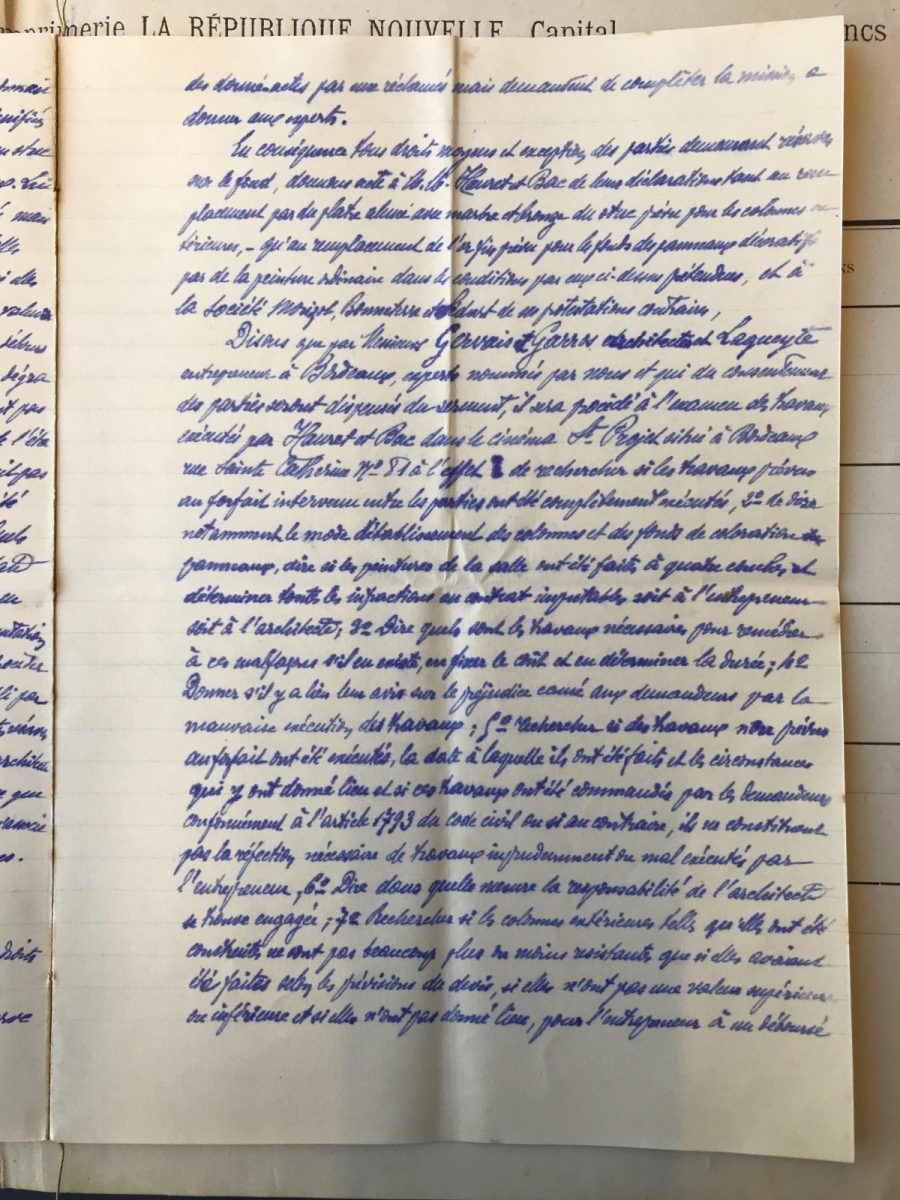 imprimerie LA RÉPUBLIQUE NOUVELLE, Capital ncs
des donner actes par eux réclamés mais demandent de compléter la mission a
donner aux experts.
En conséquence tous droits moyens et exceptions des parties demeurant réservés
sur le fond, donnons acte à M.M. Hauret et Bac de leurs déclarations tant au rem
placement par du platre aluné avec marbre et bronze du stuc prévu pour les colonnes ex
térieures, - qu'au remplacement de l'or fin prévu pour les fonds des panneaux décoratifs
par de la peinture ordinaire dans les conditions par eux ci-dessus prétendues, et à
la société Morizot, Bonneterre de ses protestations contraires,
Disons que par Messieurs Gervais Garros architectes et Lagueyte
entrepreneur à Bordeaux, experts nommés par nous et qui du consentement
des parties seront dispensés du serment, il sera procédé à l'examen des travaux
exécutés par Hauret et Bac dans le cinéma St Projet situé à Bordeaux
rue Sainte Catherine No 51 à l'effet de rechercher si les travaux prévus
au forfait intervenu entre les parties ont été complètement exécutés, 2o de dire
notamment le mode d'établissement des colonnes et des fonds de coloration des
panneaux, dire si les peintures de la salle ont été faites à quatre couches et
déterminer toutes les infractions au contrat imputables soit à l'entrepreneur
soit à l'architecte; 3o Dire quels sont les travaux nécessaires pour remédier
à ces malfaçons s'il en existe, en fixer le coût et en déterminer la durée; 4o
Donner s'il y a lieu leur avis sur le préjudice causé aux demandeurs par la
mauvaise exécution des travaux; 5o rechercher si des travaux non prévus
au forfait ont été exécutés, la date à laquelle ils ont été faits et les circonstances
qui y ont donné lieu et si ces travaux ont été commandés par les demandeurs
conformément à l'article 1793 du code civil ou si au contraire, ils ne constituent
pas la réfection nécessaire de travaux imprudemment ou mal exécutés par
l'entrepreneur, 6o Dire dans quelle mesure la responsabilité de l'architecte
se trouve engagée; 7o Rechercher si les colonnes extérieures telles qu'elles ont été
construites ne sont pas beaucoup plus ou moins resistantes que si elles avaient
été faites selon les prévisions du devis, si elles n'ont pas une valeur supérieure
ou inférieure et si elles n'ont pas donné lieu, pour l'entrepreneur à un déboursé